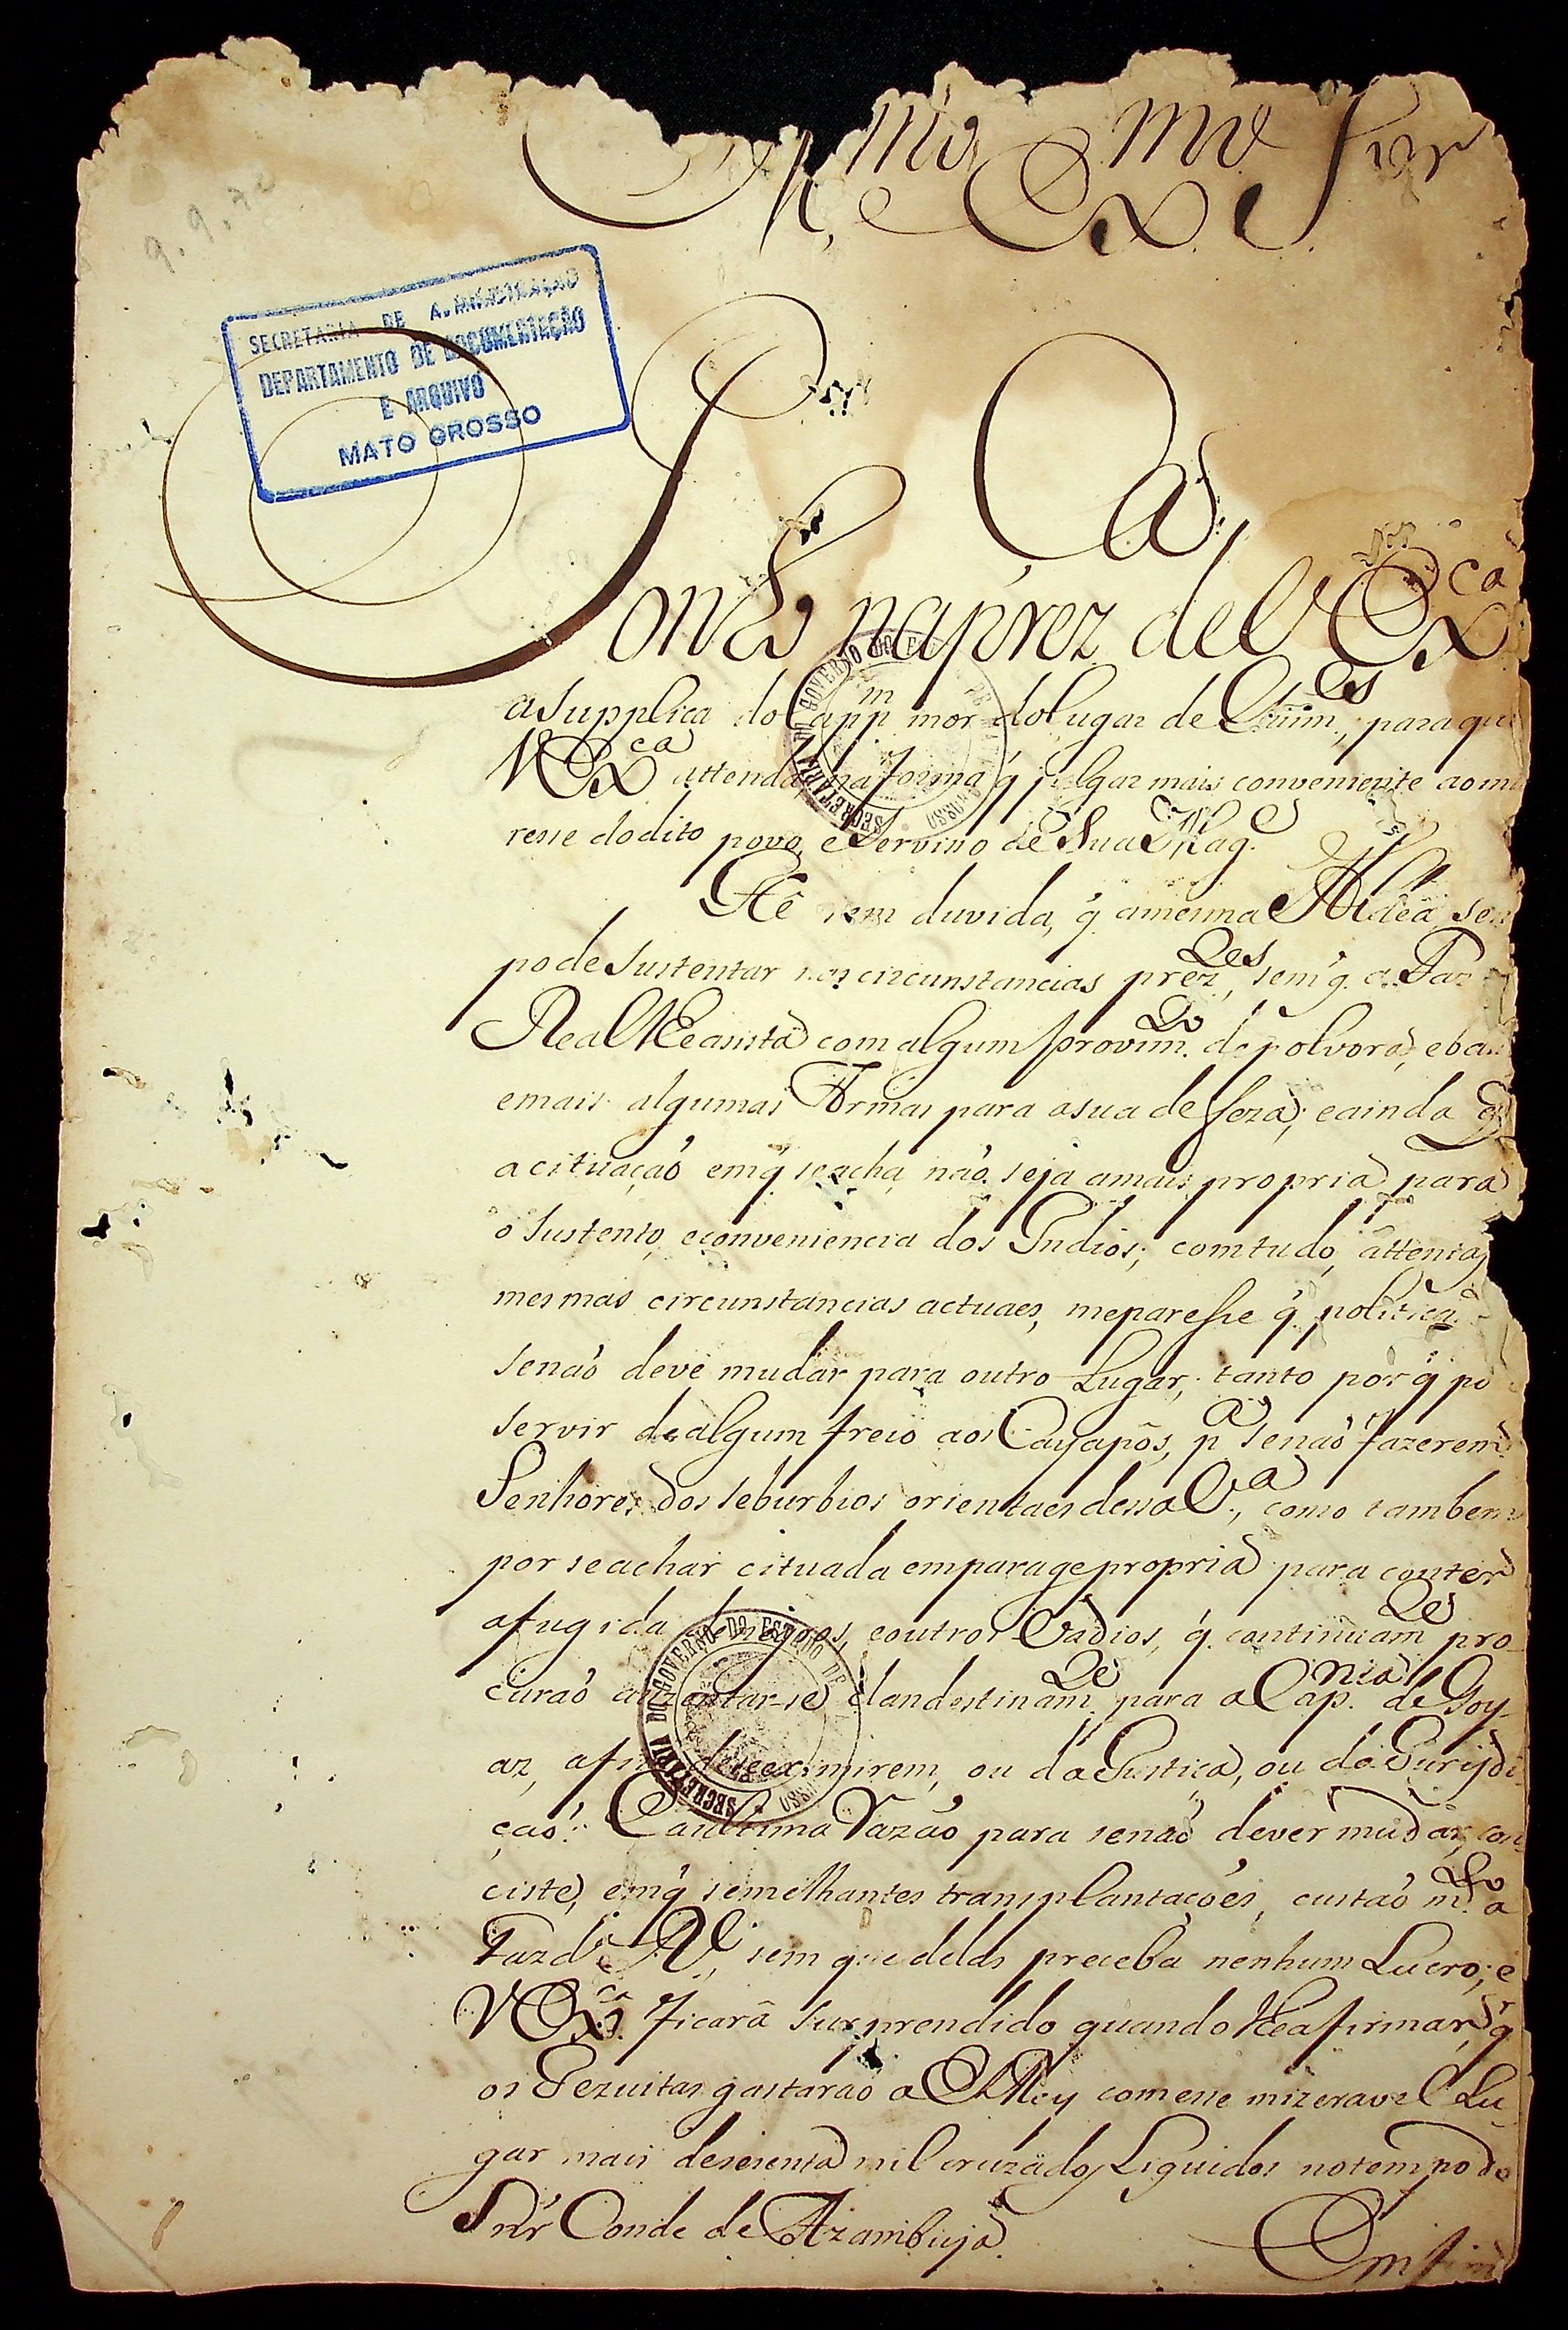 Ill.mo e Ex.mo Snr
9.9.
SECRETARIA DE ADMINISTRAÇÃO
DEPARTAMENTO DE DOCUMENTAÇÃO
E ARQUIVO
MATO GROSSO
Ponho na prez.ca de V Ex.ca
a Supplica do Capp.m mor do Lugar de Guim.es, para que
V Ex.ca attenda, na forma q̃ julgar mais conveniente ao
resse do dito povo, e Servisso de Sua Mag.e
Hê sem duvida, q̃ a mesma Aldêa se
pode Sustentar nas circunstancias prez.tes, sem q̃ a Faz
Real lhe asista com algum provim.to de polvora, e ba
e mais algumas Armas para a sua deffeza; e ainda q̃
a cituação em q̃ se acha, não seja a mais propria para
o Sustento, e conveniencia dos Indios; com tudo, attentas
mesmas circunstancias actuaes, me paresse q̃ politica
se não deve mudar para outro Lugar; tanto por q̃ po
servir de algum freio aos Cayapôs, p.a se não fazerem
Senhores dos seburbios orientaes dessa V.a, como tambem
por se achar cituada em parage propria para conter
a fugida de negros, e outros Vadios, q̃ continuam.te pro
curaõ auzentar-se clandestinam.te para a Cap.nia de Goy-
az, afim de se eximirem, ou da Justiça, ou da Jurisdi-
çaõ: E a ultima Razaõ para se naõ dever mudar, con-
ciste, em q̃ semelhantes transplantações, custaõ m.to a
Fazd.a R.l, sem que delas preceba nenhum Lucro; e
V Ex.ca ficarâ surprendido quando lhe afirmar, q̃
os Jezuitas gastaraõ a El Rey com esse mizeravel Lu-
gar mais de secenta mil cruzados Liquidos no tempo do
Snr Conde de Azambuja.
Em fim
SECRETARIA DO GOVERNO DO ESTADO DE MATTO GROSSO
SECRETARIA DO GOVERNO DO ESTADO DE MATTO GROSSO